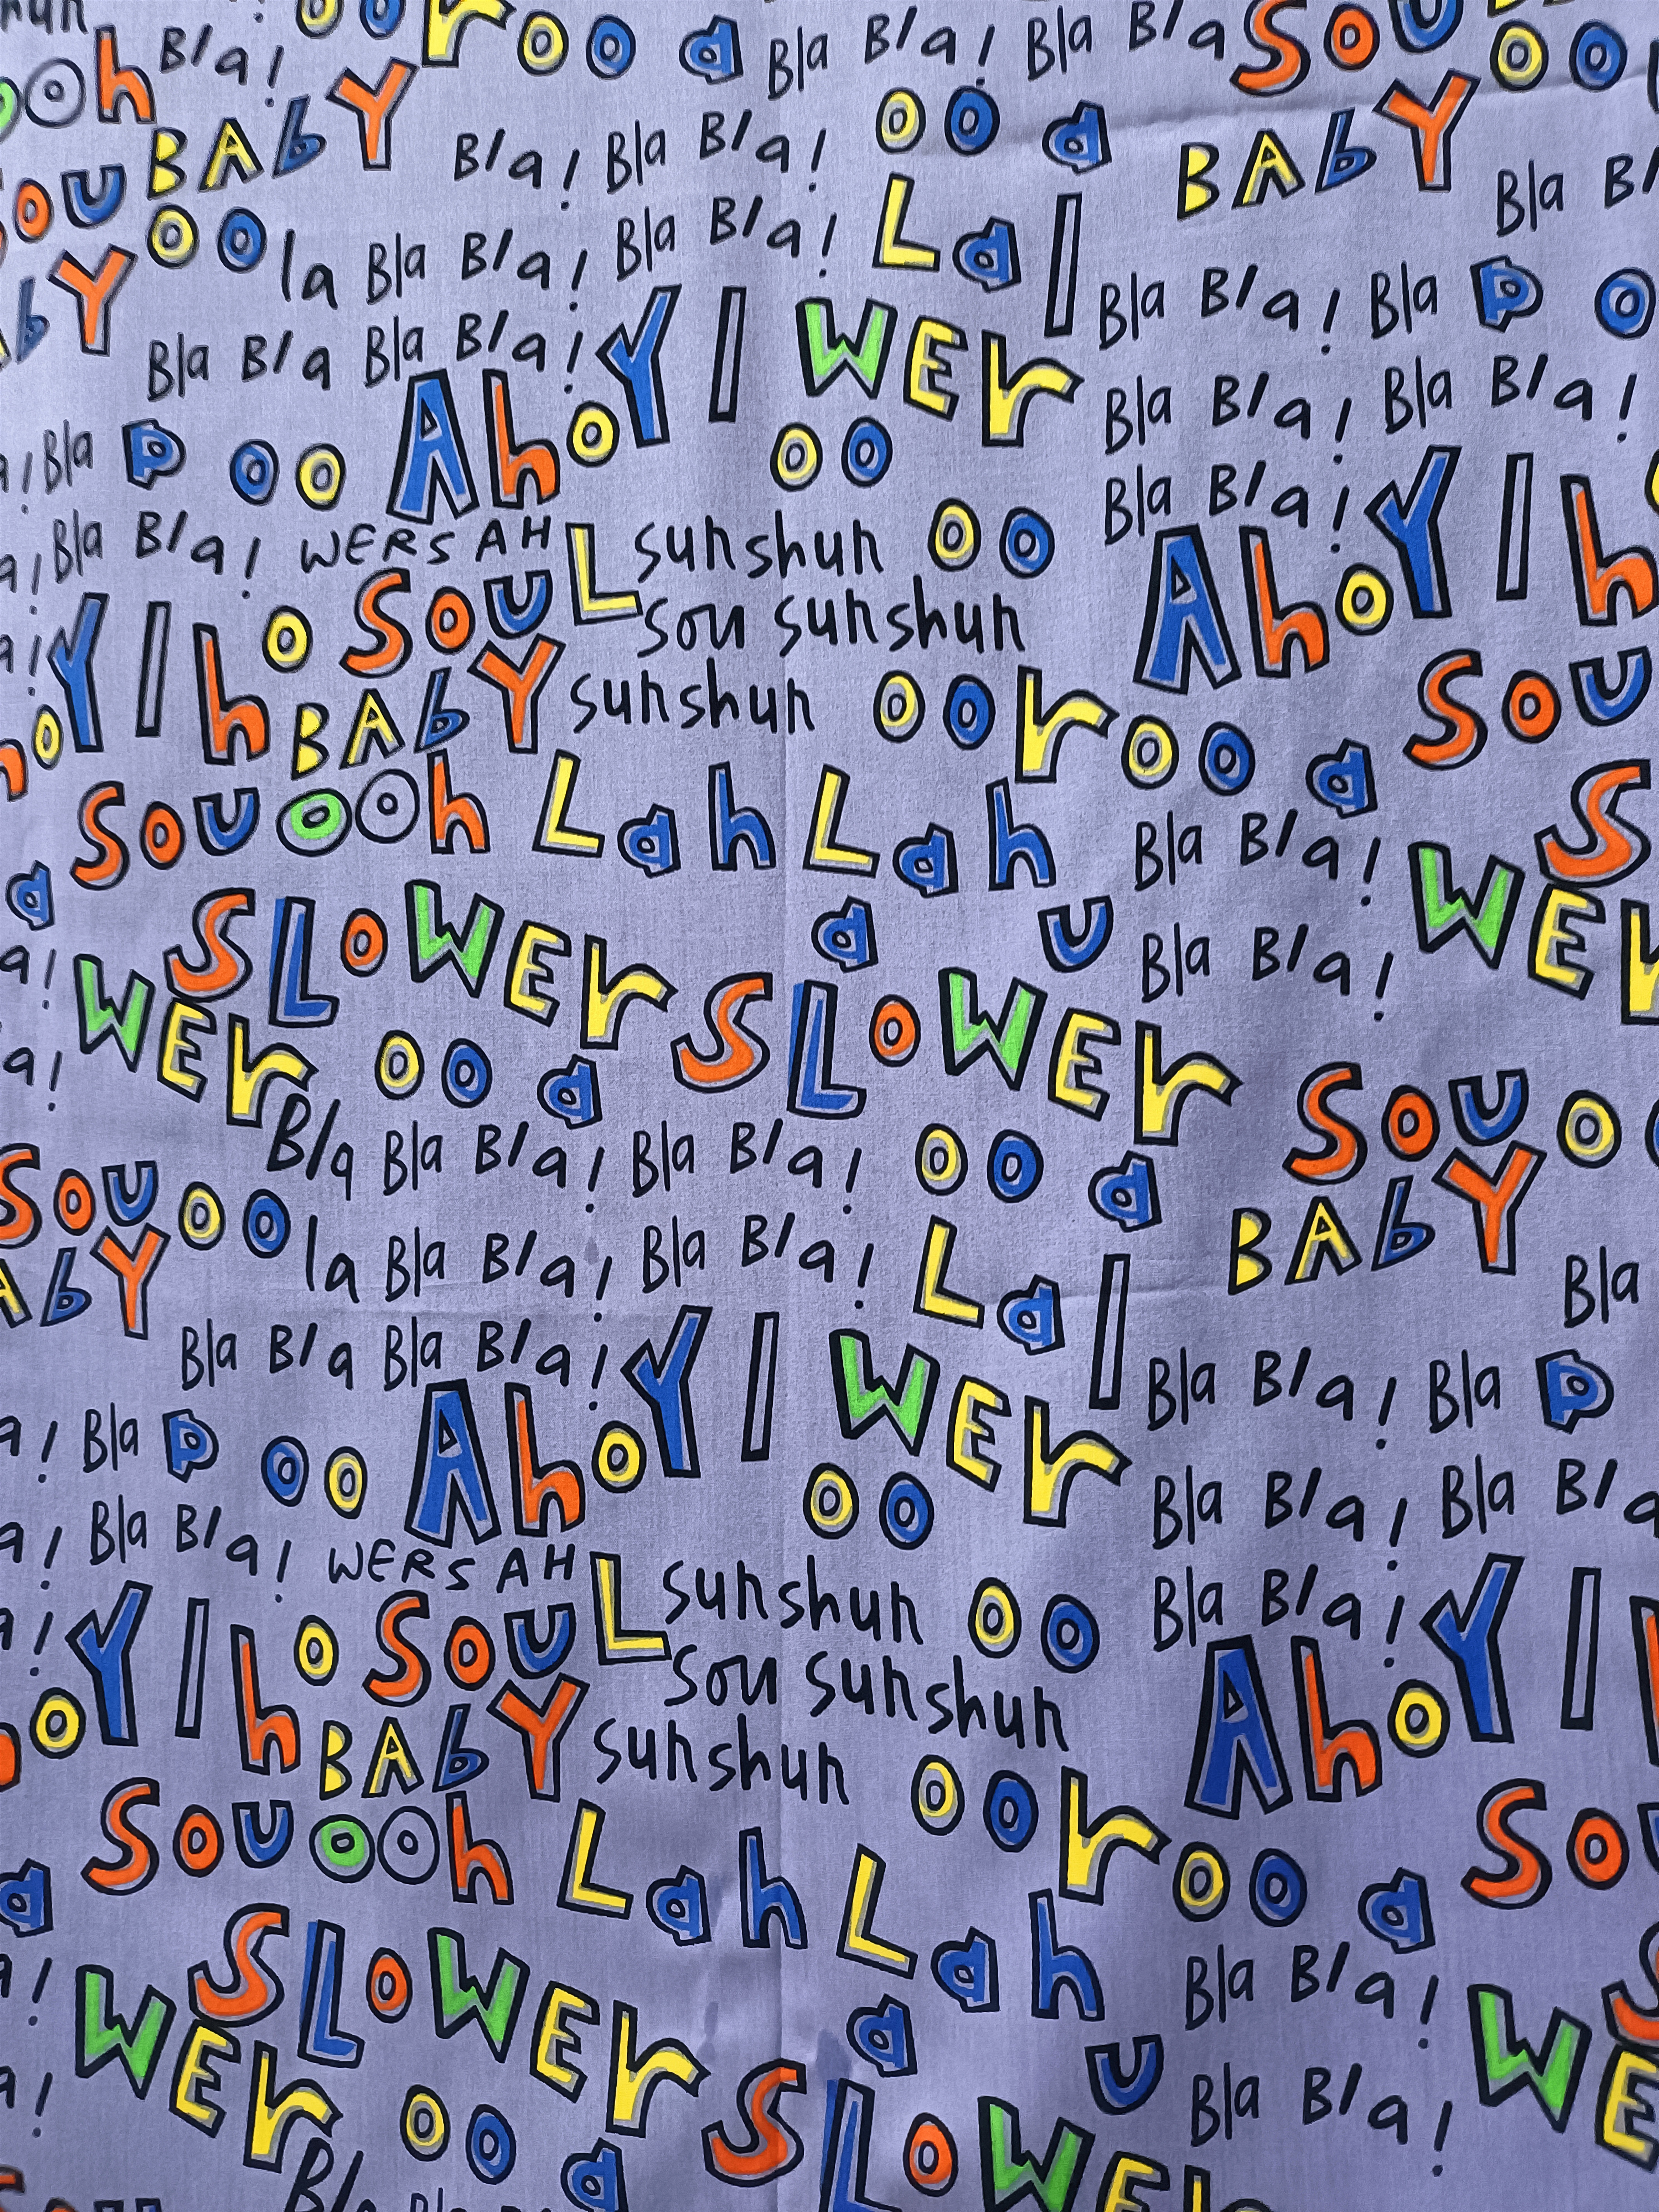 oo r oo a Bla Bla! Bla Bla Sou oo
ooh Bla!
BABY Bla! Bla Bla! oo a BABY
Sou oo la Bla Bla! Bla Bla! La l Bla
BY Bla Bla Bla Bla! Y l Wer Bla Bla! Bla P o
Bla P oo Aho oo Bla Bla! Bla Bla!
Bla Bla! WERSAH L sunshun oo Bla Bla! Y l h
Y l ho Sou sou sunshun Aho
BABY sunshun oo r oo a Sou
Sou ooh Lah Lah Bla Bla! S
a Slower a u Bla Bla! Wer
Wer oo a Slower Sou o
Bla Bla Bla! Bla Bla! oo a BABY
Sou oo la Bla Bla! Bla Bla! La l Bla
AbY Bla Bla Bla Bla! Y l Wer Bla Bla! Bla P
a! Bla P oo Aho oo Bla Bla! Bla Bla
a! Bla Bla! WERSAH L sunshun oo Bla Bla! Y l
Y l ho Sou sou sunshun Aho
o BABY sunshun oo r oo a Sou
Sou ooh Lah Lah Bla Bla!
a Slower a u Bla Bla! WE
Wer oo a Slower